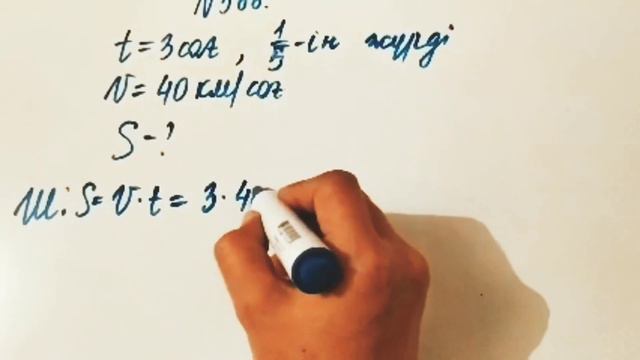 t = 3 сағ , 1/5 -ін жүрді
V = 40 км/сағ
S - ?
Ш: S = V · t = 3 · 4